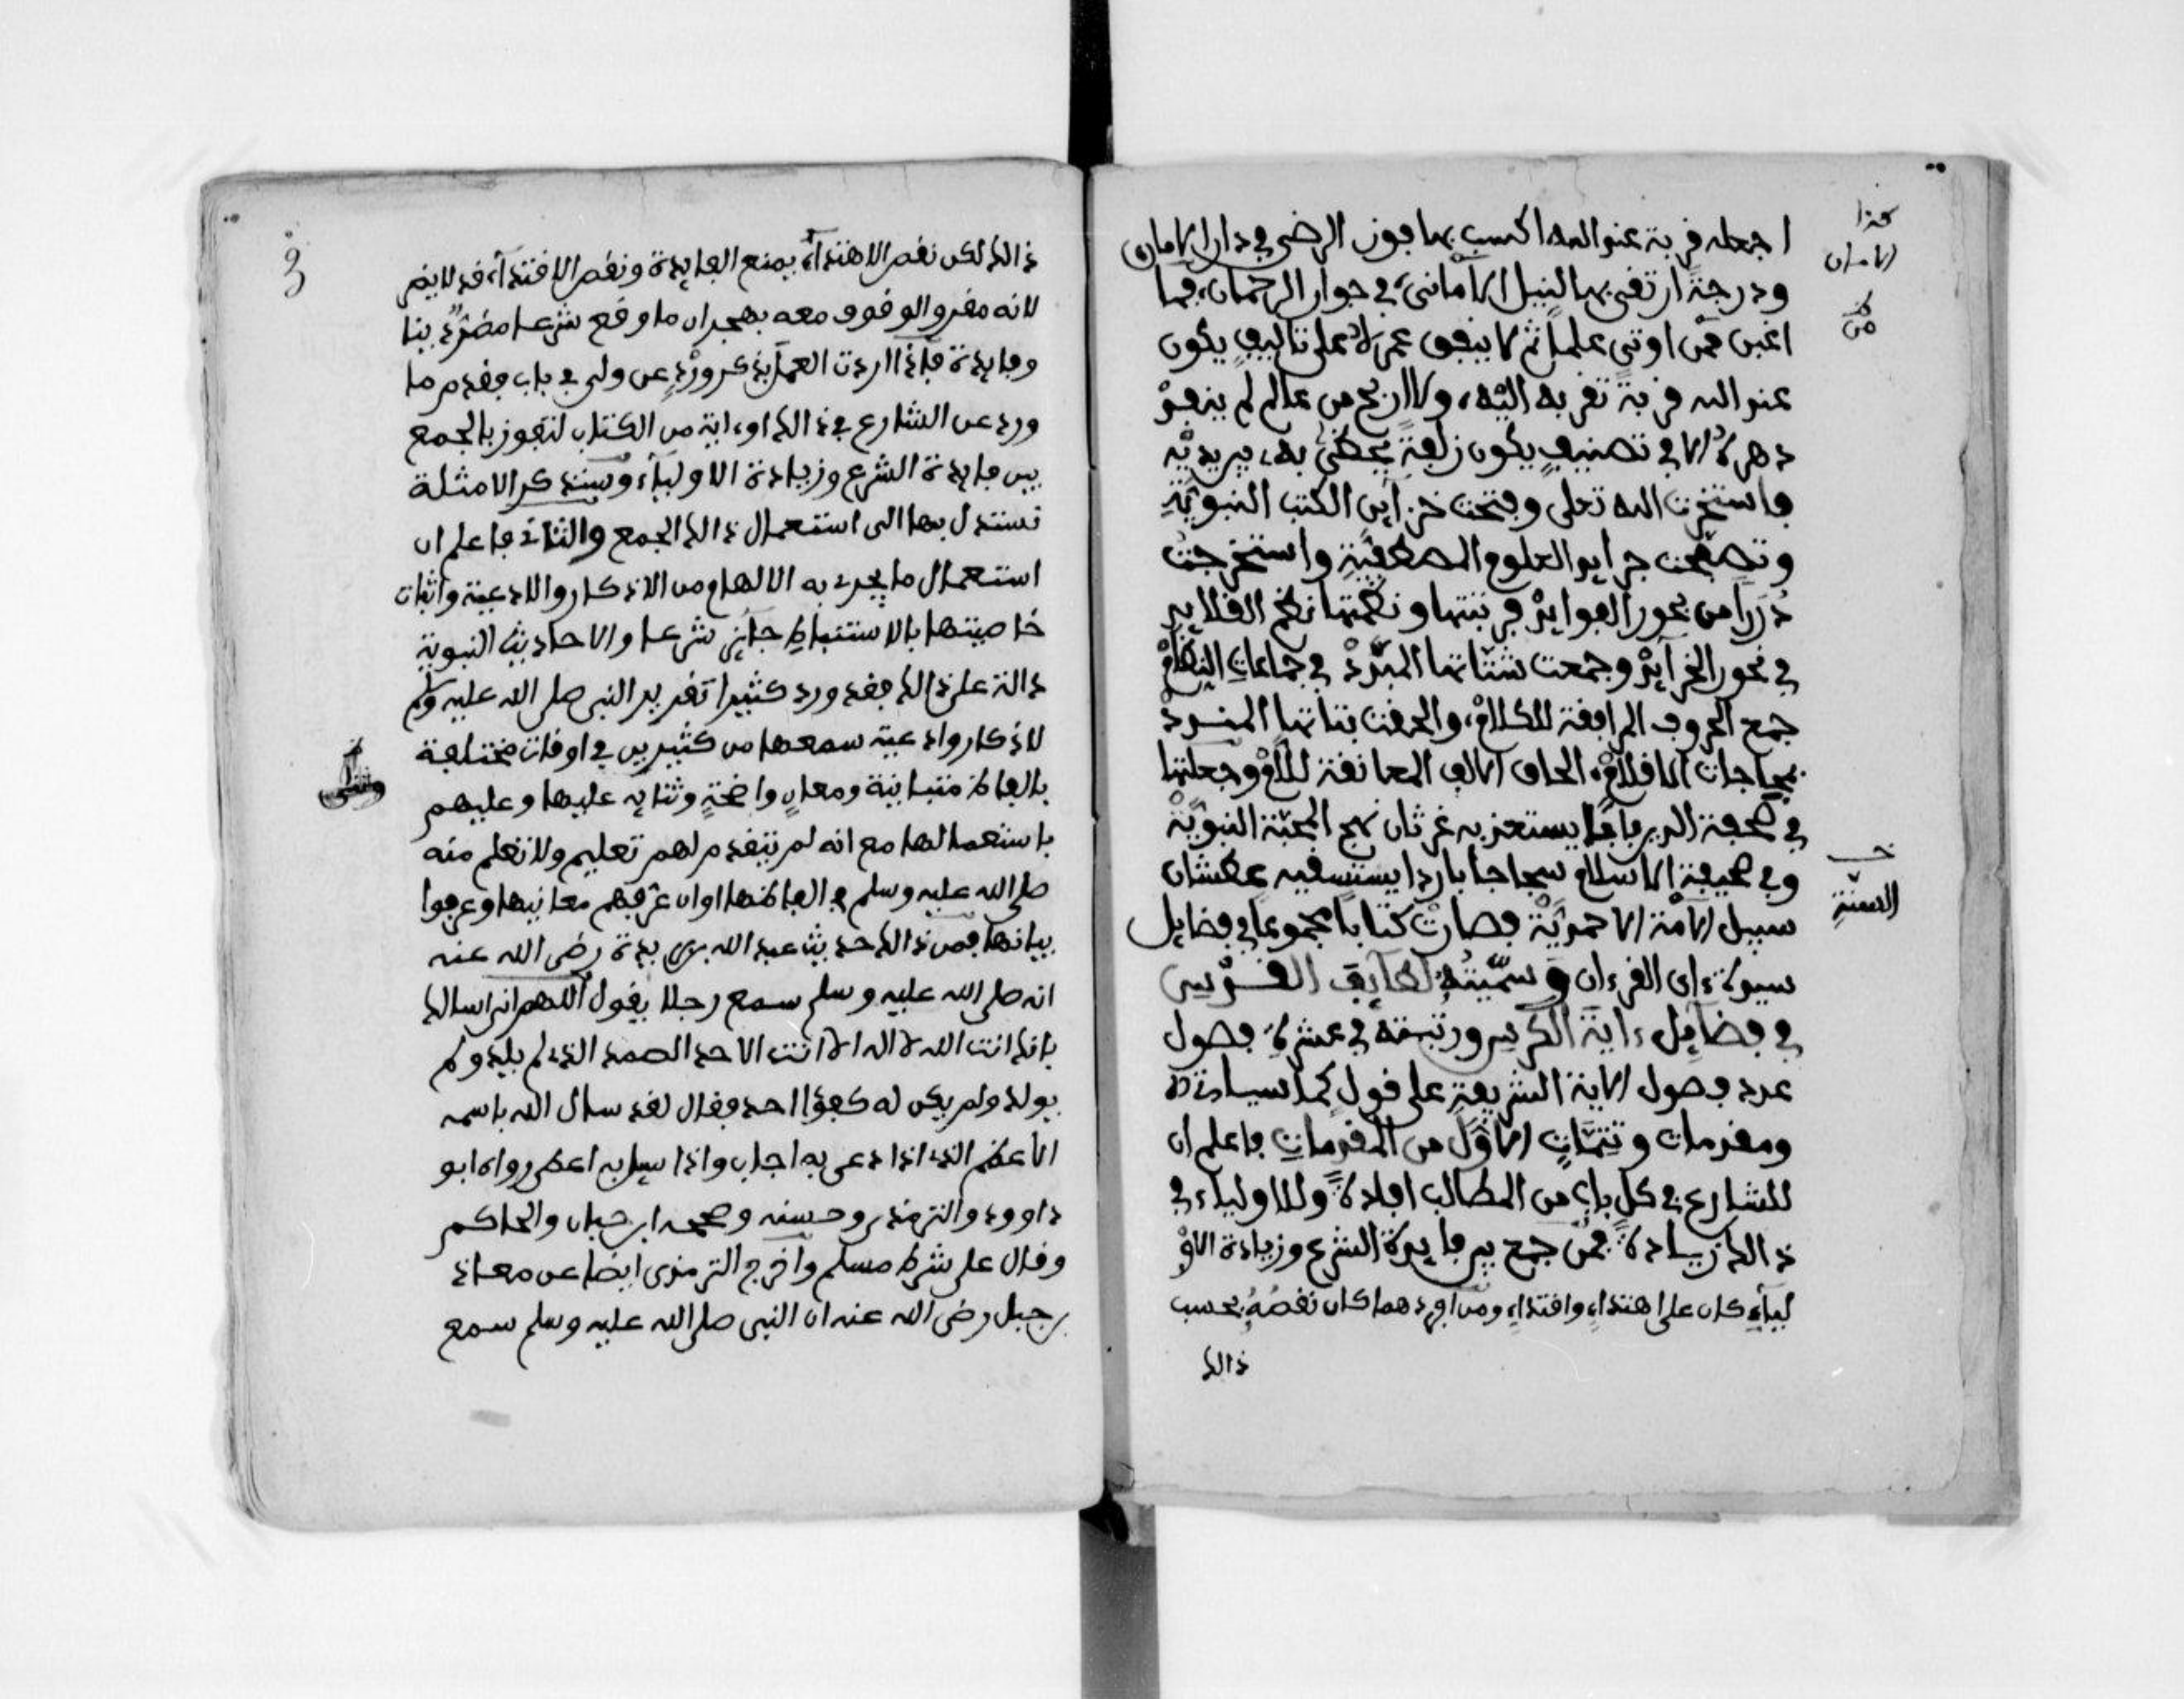 اجعله قربة عند الله اكسب بها فوز الرضى في دار الامان
ودرجة ارتقي بها لنيل الاماني في جوار الرحمان فما
اغبن ممن اوتي علما ثم لا ينفق عمره على تاليف يكون
عند الله قربة تقربه اليه ولا اربح من عالم لم ينفد
دهره الا في تصنيف يكون زلفة يحظى به بيريديه
واستخرت الله تعلى وفتحت خزاين الكتب النبوية
وتصفحت جرايد العلوم المصطفية واستخرجت
دررا من بحور الفوايد فرتبتها ونظمتها نظم القلايد
في نحور الخرآيد وجمعت شتاتها المبدد في جماعات النظام
جمع الحروف المرافقة للكلام والحقت بناتها المنسرد
بحاجات الاقلام الحاق الالف المعانقة لللام وجعلتها
في صحفة الدير يستعز به غرثان نهج المحبة النبوية
وفي صحيفة الاسلام باردا يستسقيه عطشان
سبيل الامة الاحمدية فصارت كتابا مجموعا في فضايل
سيدة ءاى القرءان وسميته لطايف القدسي
في فضايل ءاية الكرسي ورتبته في عشرة فصول
عدد فصول الاية الشريفة على قول كما سياتي
ومقدمات وتتمات الاول من المقدمات فاعلم ان
للشارع في كل باب من المطالب افادة وللاولياء في
ذالك زيادة فمن جمع بين فايدة الشرع وزيادة الاو
لياء كان على اهتداء واقتداء ومن افردهما كان نقصه بحسب
ذالك
كذا
الامان
من
السنة
ذالك لكن نقص الاهتدآء يمنع الفايدة ونقص الاقتدآء قد لا يضر
لانه مقرو الوقوف معه بهجران ما وقع شرعا مضر دينا
وفايدة فاذا اردت العمل بذكر ورد عن ولي في باب فقدم ما
ورد عن الشارع في ذالك او ءاية من الكتاب لتفوز بالجمع
بين فايدة الشرع وزيادة الاولياء وسنذكر الامثلة
تستدل بها الى استعمال ذالك الجمع والثاني فاعلم ان
استعمال ما يجري به الالهام من الاذكار والادعية واثبات
خاصيتها بالاستنباط جآئز شرعا والاحاديث النبوية
دالة على ذالك فقد ورد كثيرا تقرير النبي صلى الله عليه وسلم
لاذكار وادعية سمعها من كثيرين في اوقات مختلفة
بالفاظ متباينة ومعان واضحة وثنايه عليها وعليهم
باستعمالها مع انه لم يتقدم لهم تعليم ولا تعلم منه
صلى الله عليه وسلم في الفاظها او ان عرفهم معانيها وعرفوا
بيانها فمن ذالك حديث عبد الله بن بريدة رضي الله عنه
انه صلى الله عليه وسلم سمع رجلا يقول اللهم اني اسالك
بانك انت الله لا اله الا انت الاحد الصمد الذي لم يلد ولم
يولد ولم يكن له كفؤا احد فقال لقد سال الله باسمه
الاعظم الذي اذا دعي به اجاب واذا سيل به اعطى رواه ابو
داوود والترمذي وحسنه وصححه ابن حبان والحاكم
وقال على شرط مسلم واخرج الترمذي ايضا عن معاذ
بن جبل رضي الله عنه ان النبي صلى الله عليه وسلم سمع